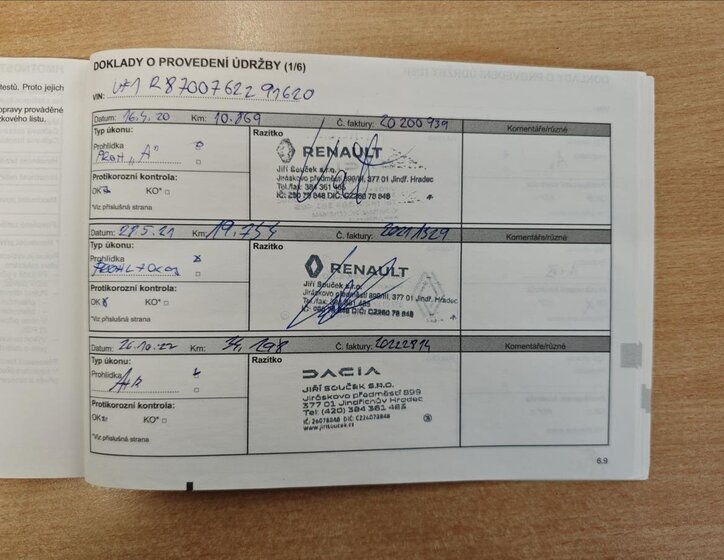 testů. Proto jejich
opravy prováděné
zkového listu.
DOKLADY O PROVEDENÍ ÚDRŽBY (1/6)
VIN: VF1 R8700762291620
Datum: 16.4.20 Km: 10.869 Č. faktury: 20200939 Komentáře/různé
Typ úkonu: Razítko
Prohlídka
PROH. "A"
RENAULT
Jiří Souček s.r.o.
Jiráskovo předměstí 899/III, 377 01 Jindř. Hradec
Tel./fax: 384 361 485
IČ: 260 78 848 DIČ: CZ260 78 848
Protikorozní kontrola:
OK KO*
*Viz příslušná strana
Datum: 28.5.21 Km: 19.754 Č. faktury: 20211329 Komentáře/různé
Typ úkonu: Razítko
Prohlídka
RENAULT
Jiří Souček s.r.o.
Jiráskovo předměstí 899/III, 377 01 Jindř. Hradec
Tel./fax: 384 361 485
IČ: 260 78 848 DIČ: CZ260 78 848
Protikorozní kontrola:
OK KO*
*Viz příslušná strana
Datum: 26.10.22 Km: 34.298 Č. faktury: 20222814 Komentáře/různé
Typ úkonu: Razítko
Prohlídka
DACIA
JIŘÍ SOUČEK S.R.O.
Jiráskovo předměstí 899
377 01 Jindřichův Hradec
Tel: (420) 384 361 485
IČ: 26078848 DIČ: CZ26078848
www.jirisoucek.cz
Protikorozní kontrola:
OK KO*
*Viz příslušná strana
6.9